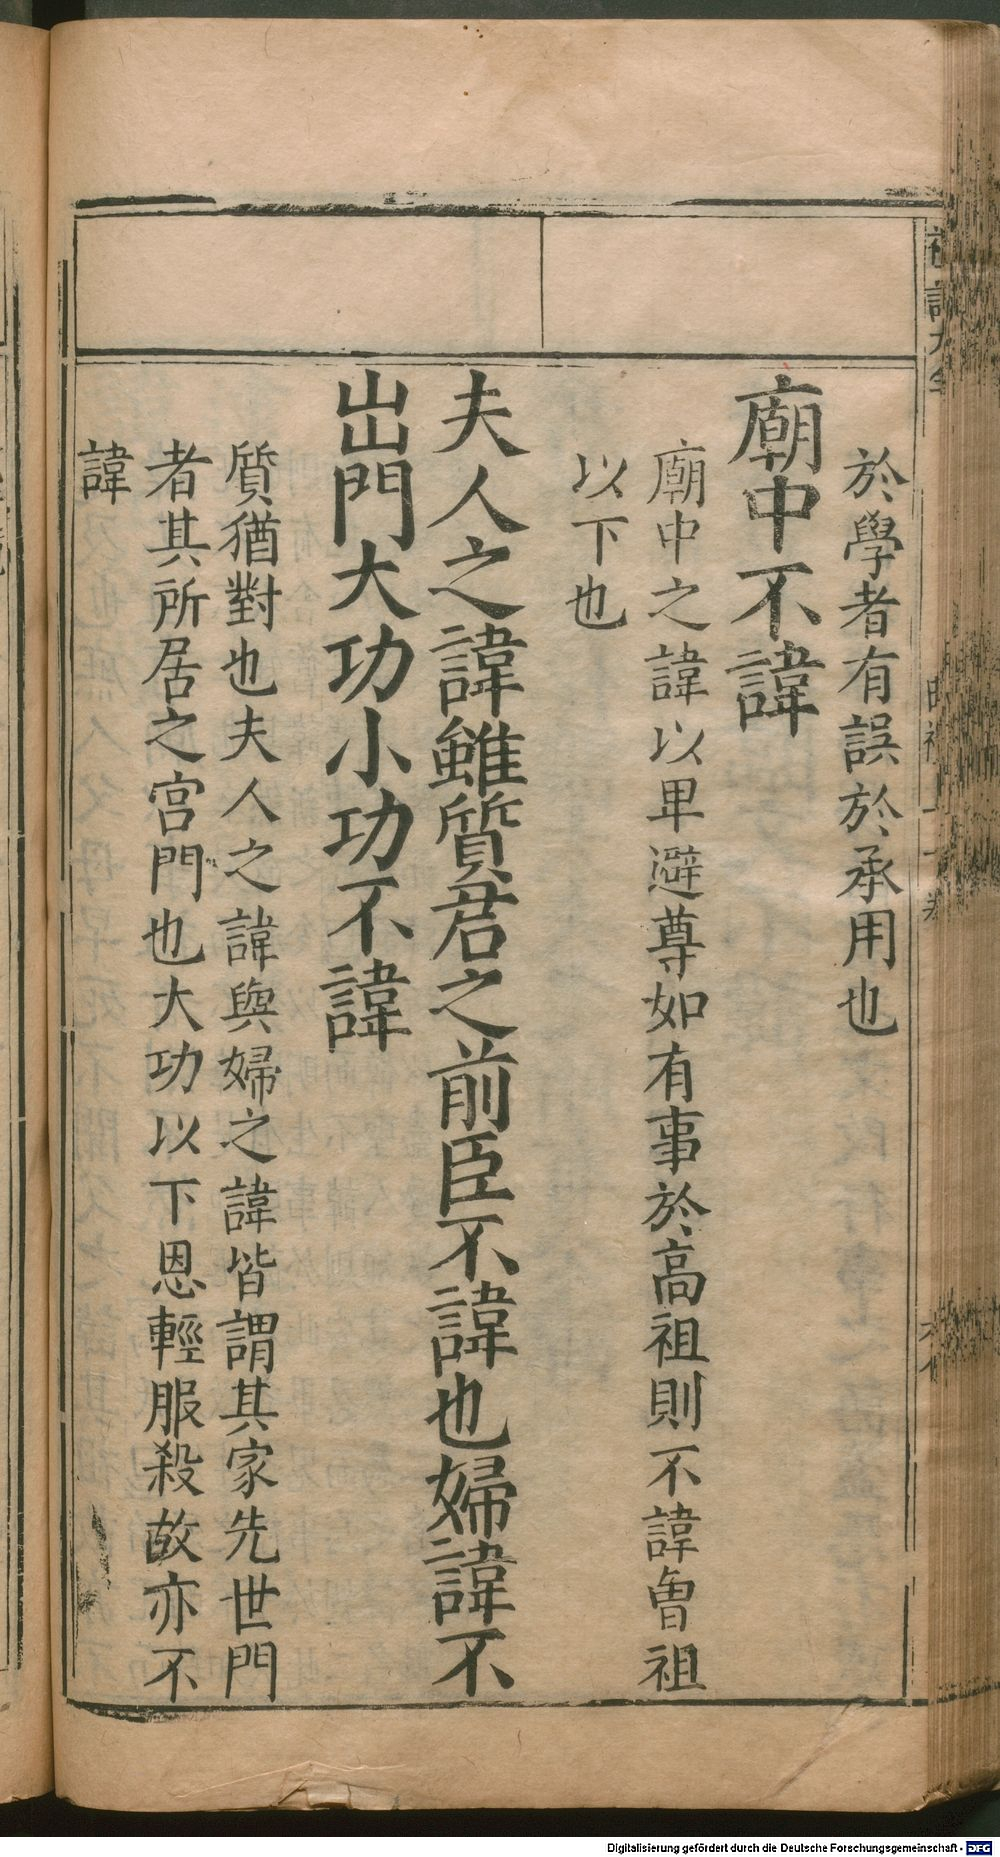 於學者有誤於承用也
廟中不諱
廟中之諱以卑避尊如有事於高祖則不諱曽祖
以下也
夫人之諱雖質君之前臣不諱也婦諱不
出門大功小功不諱
質猶對也夫人之諱與婦之諱皆謂其家先世門
者其所居之宫門也大功以下恩輕服殺故亦不
諱
Digitalisierung gefördert durch die Deutsche Forschungsgemeinschaft - DFG